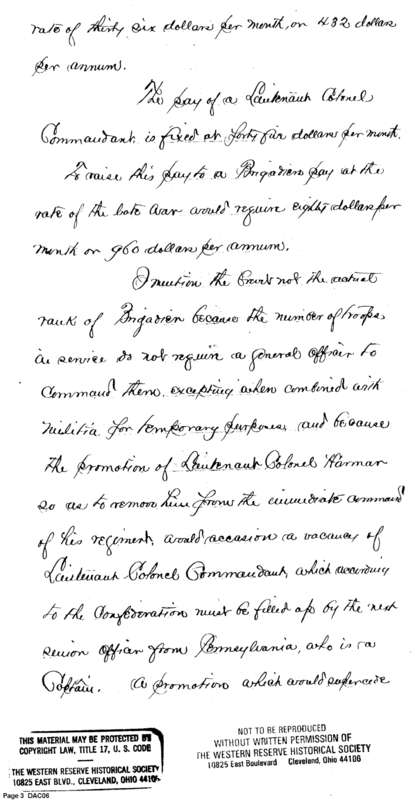 rate of thirty six dollars per month, or 432 dollars
per annum.
The pay of a Lieutenant Colonel
Commandant is fixed at forty five dollars per month.
To raise this pay to a Brigadiers pay at the
rate of the late War would require eighty dollars per
month or 960 dollars per annum.
I mention the Brevet not the actual
rank of Brigadier because the number of troops
in service do not require a general officer to
command them excepting when combined with
militia for temporary purposes, and because
the promotion of Lieutenant Colonel Harmar
so as to remove him from the immediate command
of his regiment, would occasion a vacancy of
Lieutenant Colonel Commandant, which according
to the Confederation must be filled up by the next
senior officer from Pennsylvania, who is a
Captain. A promotion which would supercede
THIS MATERIAL MAY BE PROTECTED BY
COPYRIGHT LAW, TITLE 17, U. S. CODE
THE WESTERN RESERVE HISTORICAL SOCIETY
10825 EAST BLVD., CLEVELAND, OHIO 44106
NOT TO BE REPRODUCED
WITHOUT WRITTEN PERMISSION OF
THE WESTERN RESERVE HISTORICAL SOCIETY
10825 East Boulevard Cleveland, Ohio 44106
Page 3 DAC06